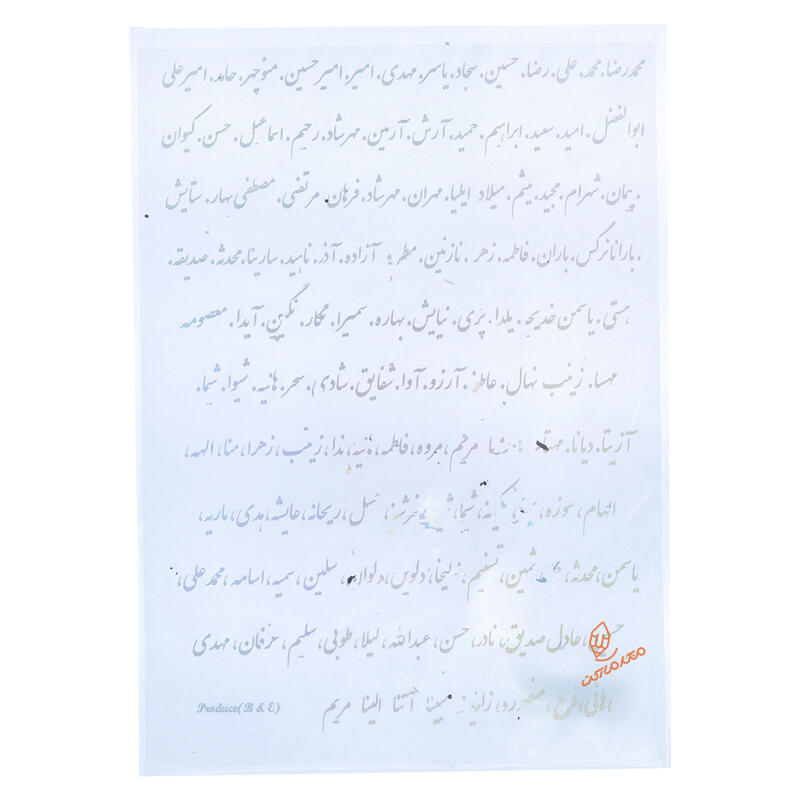 محمدرضا. محمد. علی. رضا. حسین. سجاد. یاسر. مهدی. امیر. امیرحسین. منوچهر. حامد. امیرعلی
ابوالفضل. امید. سعید. ابراهیم. حمید. آرش. آرمین. مهرشاد. رحیم. اسماعیل. حسن. کیوان
پیمان. شهرام. مجید. میثم. میلاد ایلیا. مهران. مهرشاد. فرهان. مرتضی. مصطفی بهار. ستایش
.بارانا نرگس. باران. فاطمه. زهر . نازنین. آزاده. آذر. ناهید. سارینا. محدثه. صدیقه.
هستی. یاسمن خدیجه. یلدا. پری. نیایش. بهاره. سمیرا. نگار. نگین. آیدا. معصومه
مهسا. زینب نهال. آرزو. آوا. شقایق. شادی. سحر. هانیه. شیوا. شیما.
آزیتا. دیانا. مریم، مروه، فاطمه، هانیه، ندا، زینب، زهرا، منا، الهه،
الهام، سوزه، شیما، عسل، ریحانه، عایشه، هدی، ماریه،
یاسمن، محدثه، ثمین، تسنیم، زلیخا، دلوین، سلین، سمیه، اسامه، محمد علی،
عادل صدیق، نادر، حسن، عبدالله، لیلا، طوبی، سلیم، عرفان، مهدی
هانی، فرح، مبینا آتنا الینا مریم
Produce(B & E)